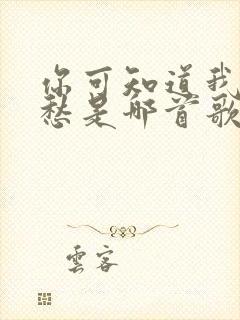 你可知道我
愁是哪首歌
雲客